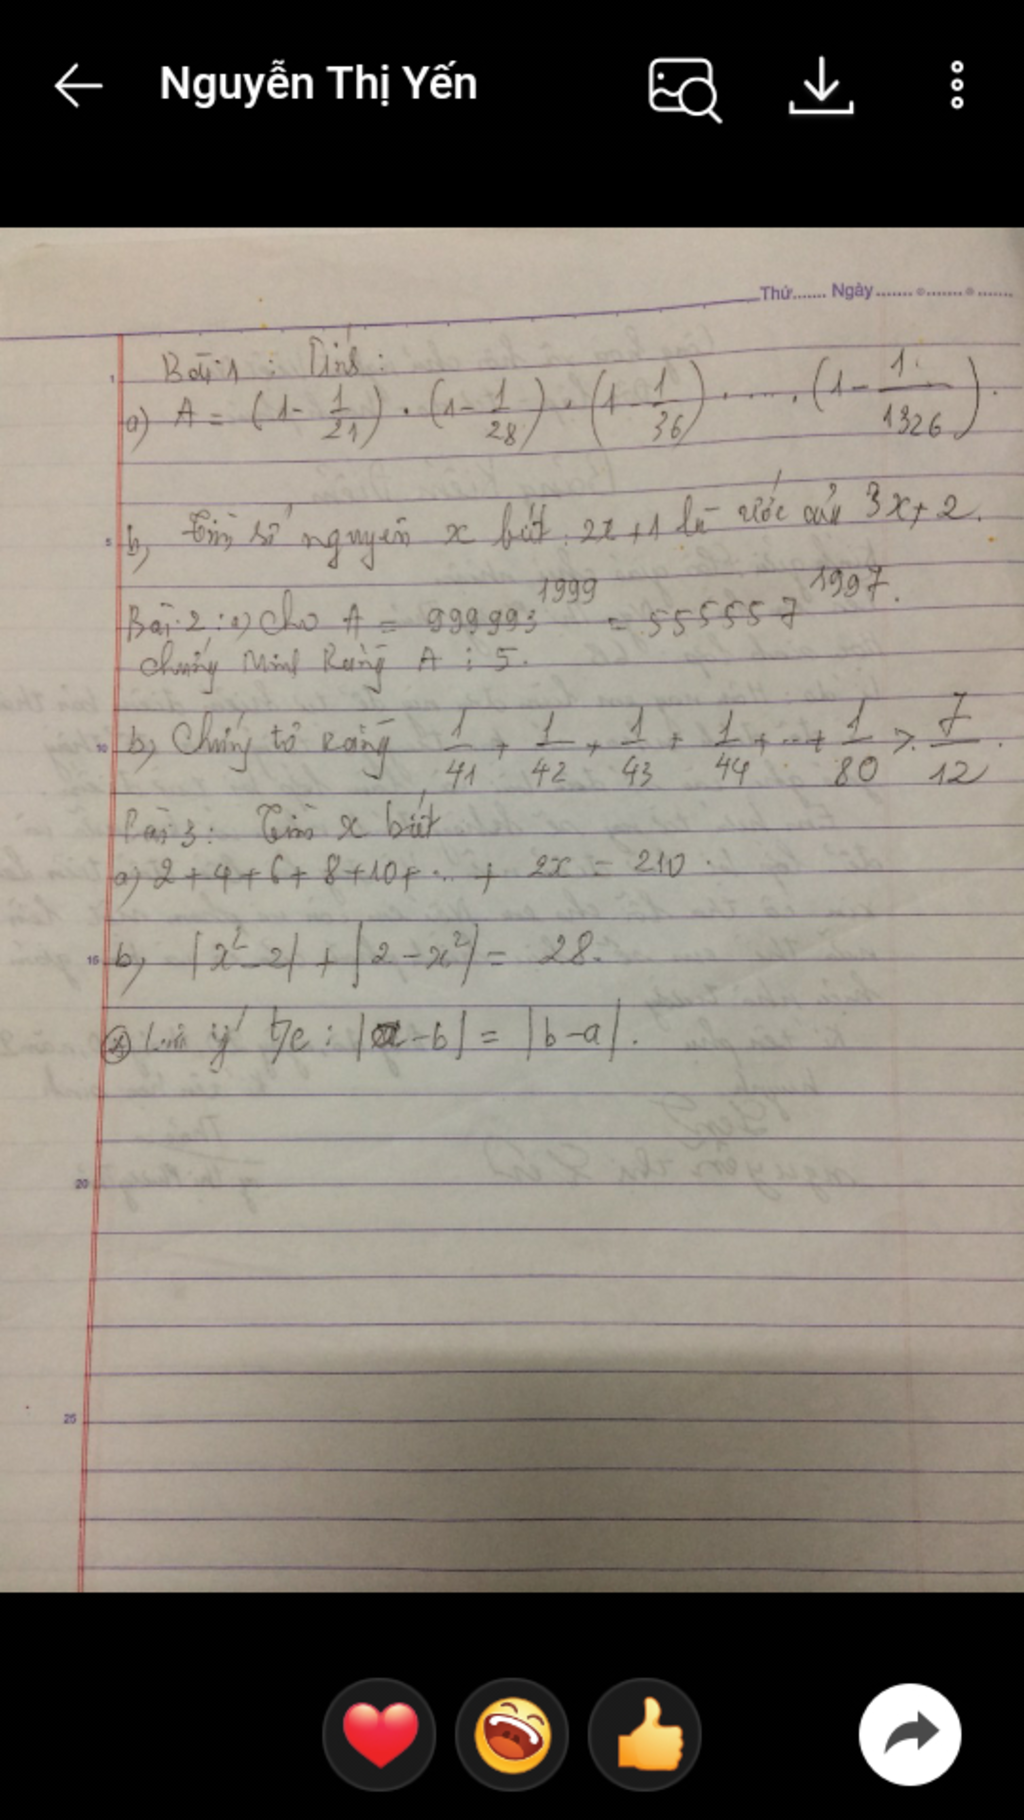 Nguyễn Thị Yến
Thứ....... Ngày ....... ....... .......
Bài 1 : Tính :
a) A = (1 - 1/21) . (1 - 1/28) . (1 - 1/36) . .... . (1 - 1/1326) .
b, Tìm số nguyên x biết : 2x + 1 là ước của 3x + 2 .
Bài 2 : a) Cho A = 999993^1999 - 555557^1997 .
Chứng Minh Rằng A ⋮ 5 .
b, Chứng tỏ Rằng 1/41 + 1/42 + 1/43 + 1/44 + ... + 1/80 > 7/12 .
Bài 3 : Tìm x biết
a) 2 + 4 + 6 + 8 + 10 + ... + 2x = 210 .
b, |x² - 2| + |2 - x²| = 28 .
Lưu ý t/c : |a - b| = |b - a| .
1
5
10
15
20
25